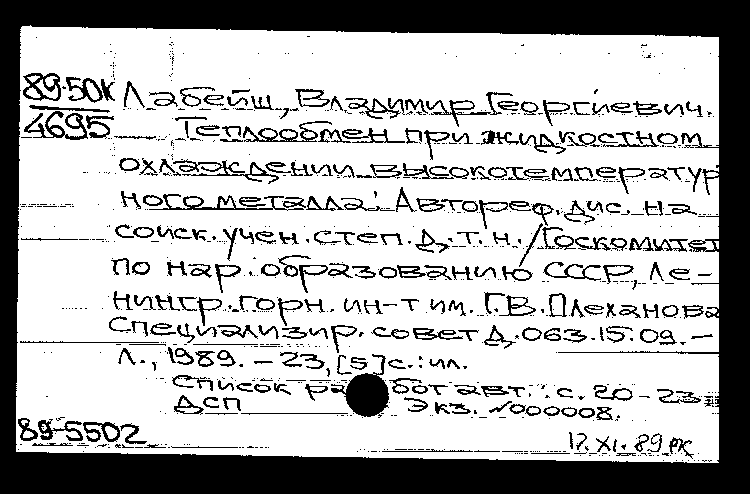 89-50К Лабейш, Владимир Георгиевич.
4695 Теплообмен при жидкостном
охлаждении высокотемператур
ного металла: Автореф. дис. на
соиск. учен. степ. д.т.н. / Госкомитет
по нар. образованию СССР, Ле-
нингр. горн. ин-т им. Г.В. Плеханова
Специализир. совет Д.063.15.09. –
Л., 1989. – 23, [5] с.: ил.
Список работ авт.: с. 20-23
ДСП Экз. №000008.
89-5502
17.XI.89 РК